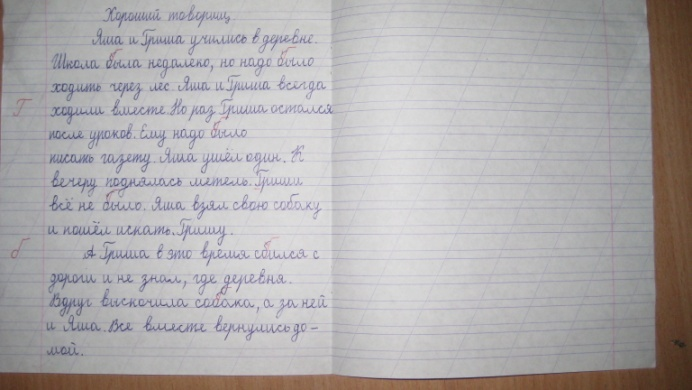 Хороший товарищ.
Яша и Гриша учились в деревне.
Школа была недалеко, но надо было
ходить через лес. Яша и Гриша всегда
Г ходили вместе. Но раз Гриша остался
после уроков. Ему надо было
писать газету. Яша ушёл один. К
вечеру поднялась метель. Гриши
всё не было. Яша взял свою собаку
и пошёл искать Гришу.
б А Гриша в это время сбился с
дороги и не знал, где деревня.
Вдруг выскочила собака, а за ней
и Яша. Все вместе вернулись до-
мой.